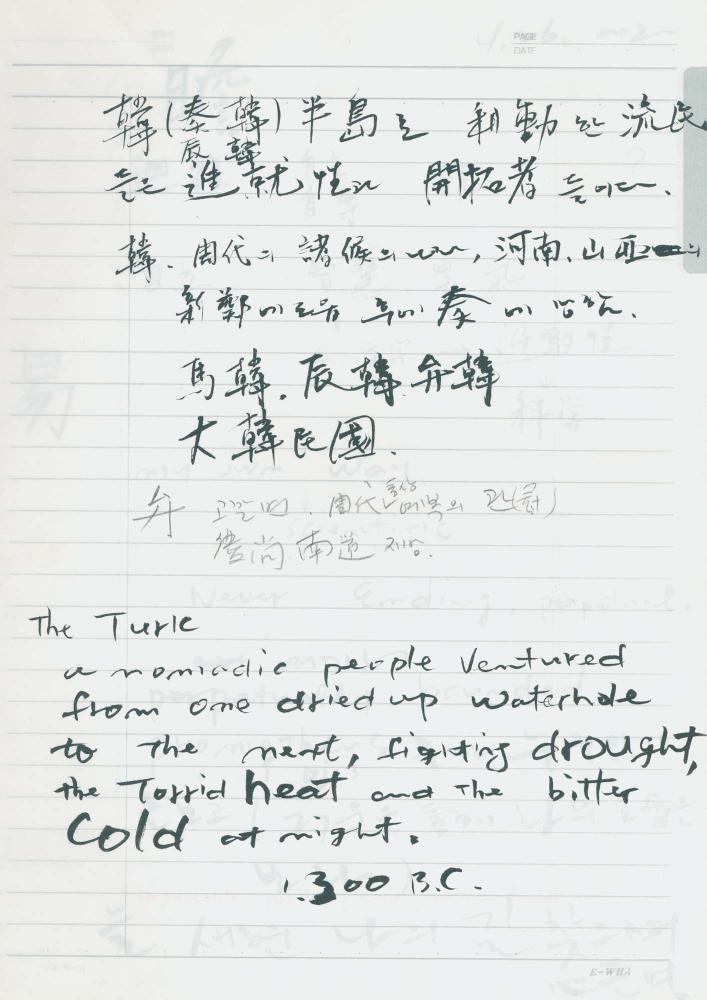 PAGE
DATE
韓(秦韓)半島로 移動한 流民
辰韓
들은 進就性과 開拓者들이다.
韓. 周代의 諸侯의 나라, 河南, 山西의
新鄭에 도읍 후에 秦에 망함.
馬韓. 辰韓 弁韓
大韓民國.
弁 고깔 변. 周代 통상 예복의 관(冠)
慶尚南道 지방.
The Turk
a nomadic people ventured
from one dried up waterhole
to the next, fighting drought,
the Torrid heat and the bitter
cold at night.
1.300 B.C.
E-WHA